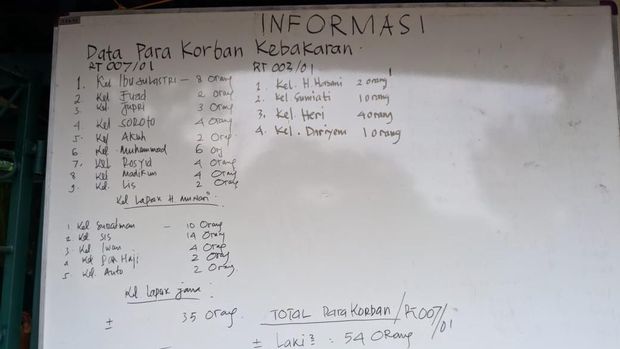 INFORMASI
Data Para Korban Kebakaran.
RT 007/01
1. Kel Ibu SULASTRI - 8 Orang
2 Kel Fuad 2 orang
3 Kel. Jupri 3 Orang
4 Kel SOROTO 4 Orang
5. Kel Akuh 2 Orap
6 Kel. Muhammad 6 org
7. Kel Rosyid 4 Orang
8 Kel Madikun 4 Orang
9. Kel. Lis 2 Orang
Kel Lapak H. Munari
1 Kel Suratman - 10 Orang
2 Kel SIS 14 Orang
3 Kel Iwan 4 Orap
4 Kel Pak Haji 2 Orang
5. Kel. Anto 2 Orang
Kel Lapak jana :
± 35 Orang.
RT 002/01
1. Kel. H. Hasani 2 orang
2. Kel Sumiati 1 orang
3. Kel. Heri 4 orang
4. Kel. Dariyem 1 orang
TOTAL Para Korban / RT 007/01
± Laki 2 : 54 Orang